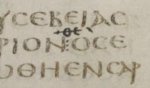 ΥϹΕΒΕΙΑϹ
ΡΙΟΝΟϹΕ
ΩΘΗΕΝϹΑΡ